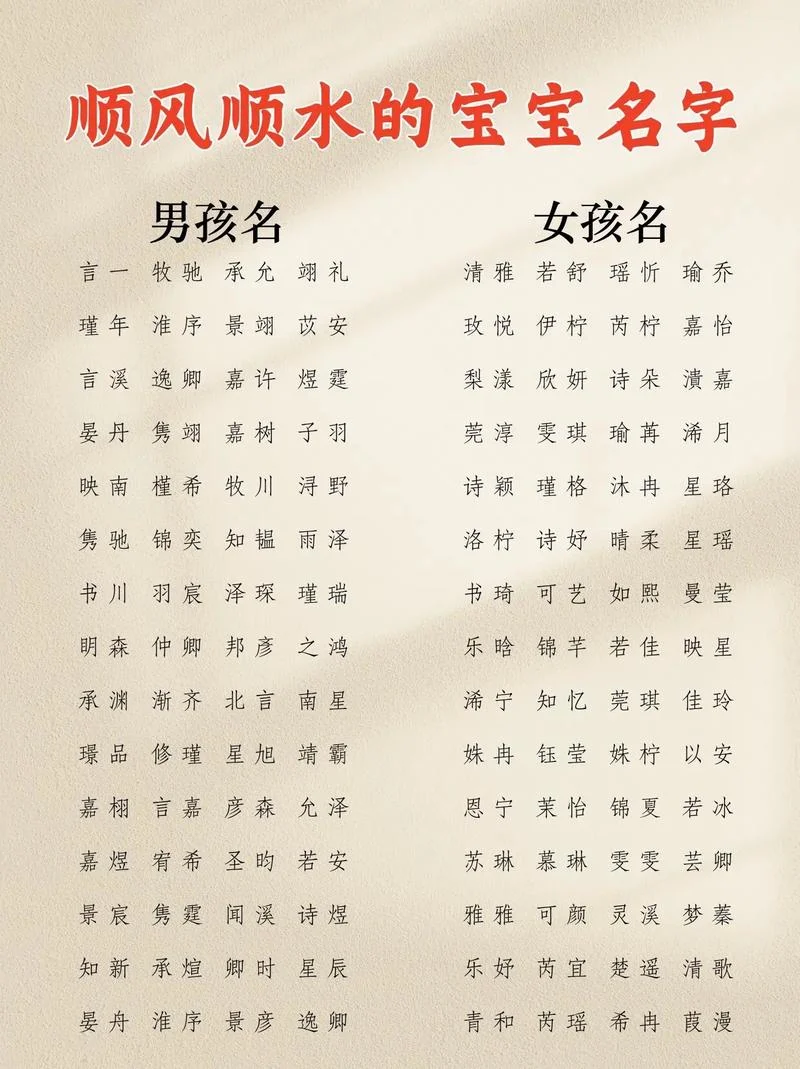 顺风顺水的宝宝名字
男孩名
言一 牧驰 承允 翊礼
瑾年 淮序 景翊 苡安
言溪 逸卿 嘉许 煜霆
晏丹 隽翊 嘉树 子羽
映南 槿希 牧川 浔野
隽驰 锦奕 知韫 雨泽
书川 羽宸 泽琛 瑾瑞
明森 仲卿 邦彦 之鸿
承渊 渐齐 北言 南星
璟品 修瑾 星旭 靖霸
嘉栩 言嘉 彦森 允泽
嘉煜 宥希 圣昀 若安
景宸 隽霆 闻溪 诗煜
知新 承煊 卿时 星辰
晏舟 淮序 景彦 逸卿
女孩名
清雅 若舒 瑶忻 瑜乔
玫悦 伊柠 芮柠 嘉怡
梨漾 欣妍 诗朵 潰嘉
莞淳 雯琪 瑜苒 浠月
诗颖 瑾格 沐冉 星珞
洛柠 诗妤 晴柔 星瑶
书琦 可艺 如熙 曼莹
乐晗 锦芊 若佳 映星
浠宁 知忆 莞琪 佳玲
姝冉 钰莹 姝柠 以安
恩宁 茉怡 锦夏 若冰
苏琳 慕琳 雯雯 芸卿
雅雅 可颜 灵溪 梦蓁
乐妤 芮宜 楚遥 清歌
青和 芮瑶 希冉 葭漫